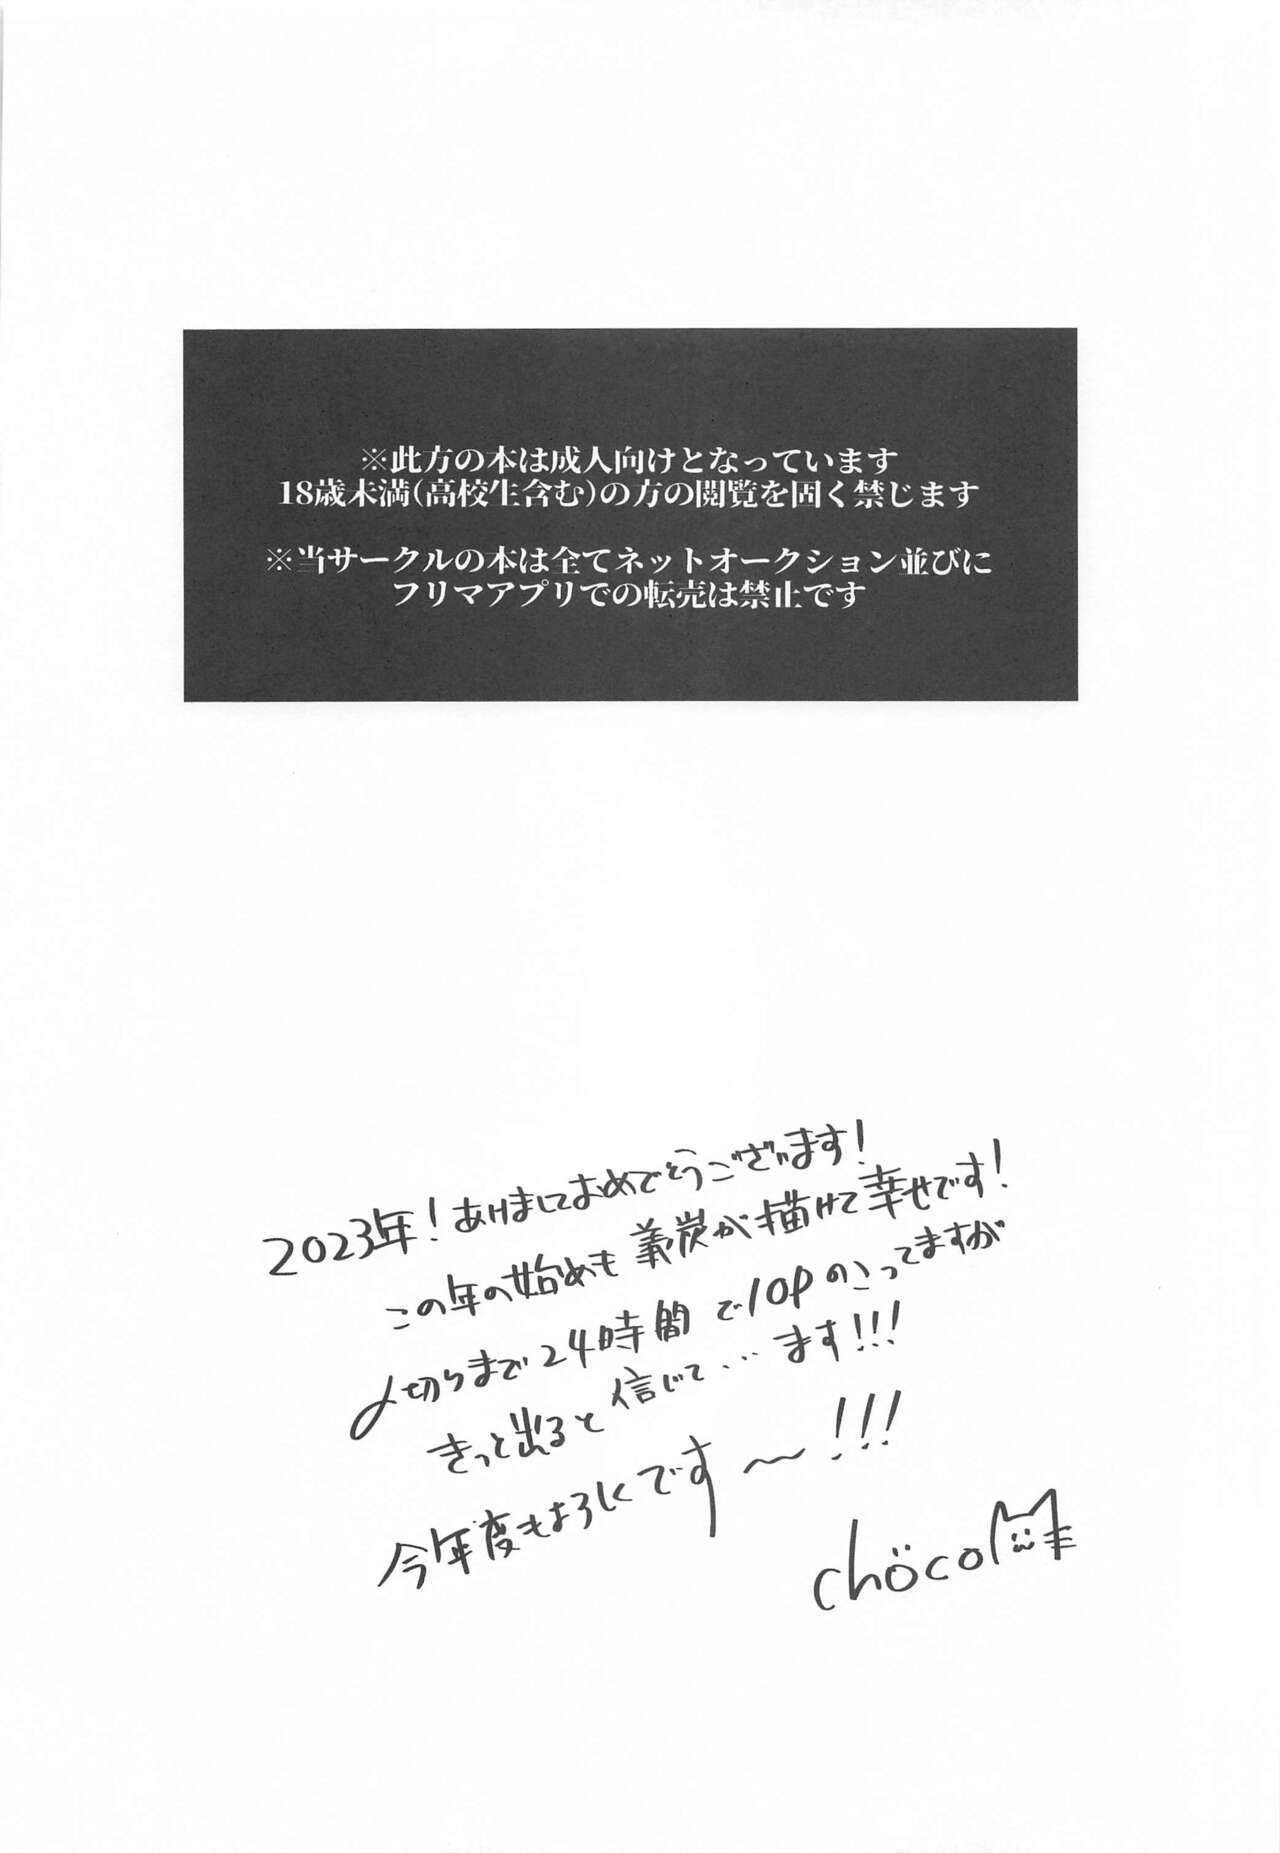 ※此方の本は成人向けとなっています
18歳未満(高校生含む)の方の閲覧を固く禁じます
※当サークルの本は全てネットオークション並びに
フリマアプリでの転売は禁止です
2023年！あけましておめでとうございます！
この年の始めも義炭が描けて幸せです！
〆切りまで24時間で10Pのこってますが
きっと出ると信じて…ます!!!
今年度もよろしくです〜!!!
chöco